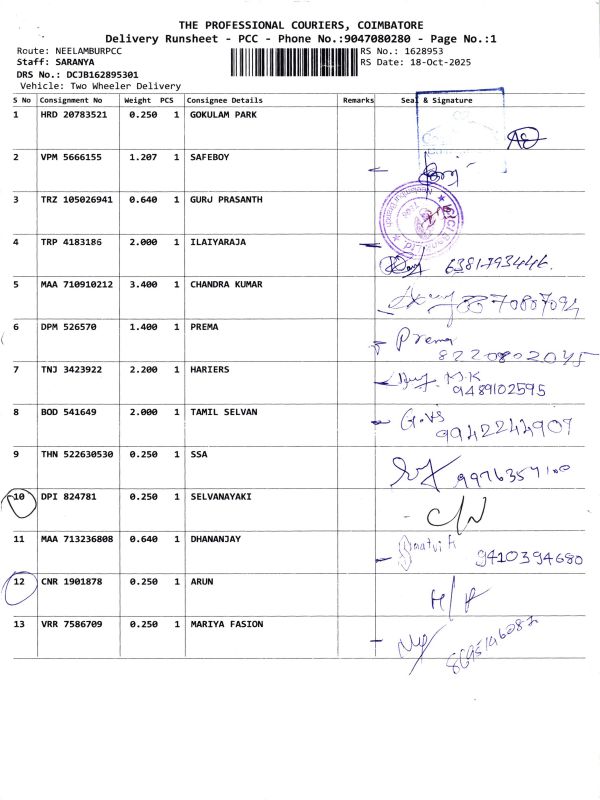 THE PROFESSIONAL COURIERS, COIMBATORE
Delivery Runsheet - PCC - Phone No.:9047080280 - Page No.:1
Route: NEELAMBURPCC RS No.: 1628953
Staff: SARANYA RS Date: 18-Oct-2025
DRS No.: DCJB162895301
Vehicle: Two Wheeler Delivery
S No Consignment No Weight PCS Consignee Details Remarks Seal & Signature
1 HRD 20783521 0.250 1 GOKULAM PARK
2 VPM 5666155 1.207 1 SAFEBOY
3 TRZ 105026941 0.640 1 GURJ PRASANTH
4 TRP 4183186 2.000 1 ILAIYARAJA
6381793446.
5 MAA 710910212 3.400 1 CHANDRA KUMAR
6 DPM 526570 1.400 1 PREMA
Prema
8220802045
7 TNJ 3423922 2.200 1 HARIERS
M.K
9489102595
8 BOD 541649 2.000 1 TAMIL SELVAN
9942244907
9 THN 522630530 0.250 1 SSA
10 DPI 824781 0.250 1 SELVANAYAKI
C/N
11 MAA 713236808 0.640 1 DHANANJAY
9410394680
12 CNR 1901878 0.250 1 ARUN
13 VRR 7586709 0.250 1 MARIYA FASION